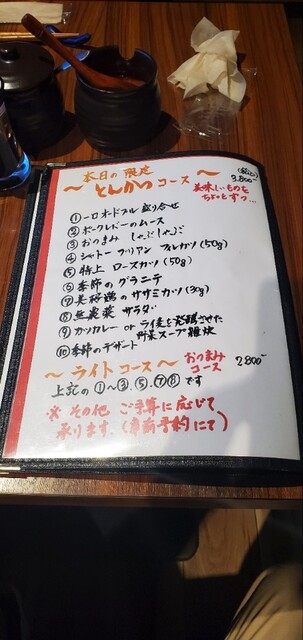 本日の 限定
～ とんかつ コース ～
(税込)
3,800-
美味しいものを
ちょっとずつ...
①一口オードブル 盛り合せ
②ポークレバーのムース
③おつまみ しゃぶしゃぶ
④シャトーブリアン フィレカツ (50g)
⑤特上 ロースカツ (50g)
⑥季節の グラニテ
⑦美桜鶏の ササミカツ (30g)
⑧無農薬 サラダ
⑨カツカレー or ライ麦と発酵させた
野菜スープ 雑炊
⑩季節のデザート
～ ライト コース ～
おつまみ
コース
2,800-
上記の ①～③.⑤.⑦⑧ です
※ その他 ご予算に応じて
承ります。(事前予約にて)